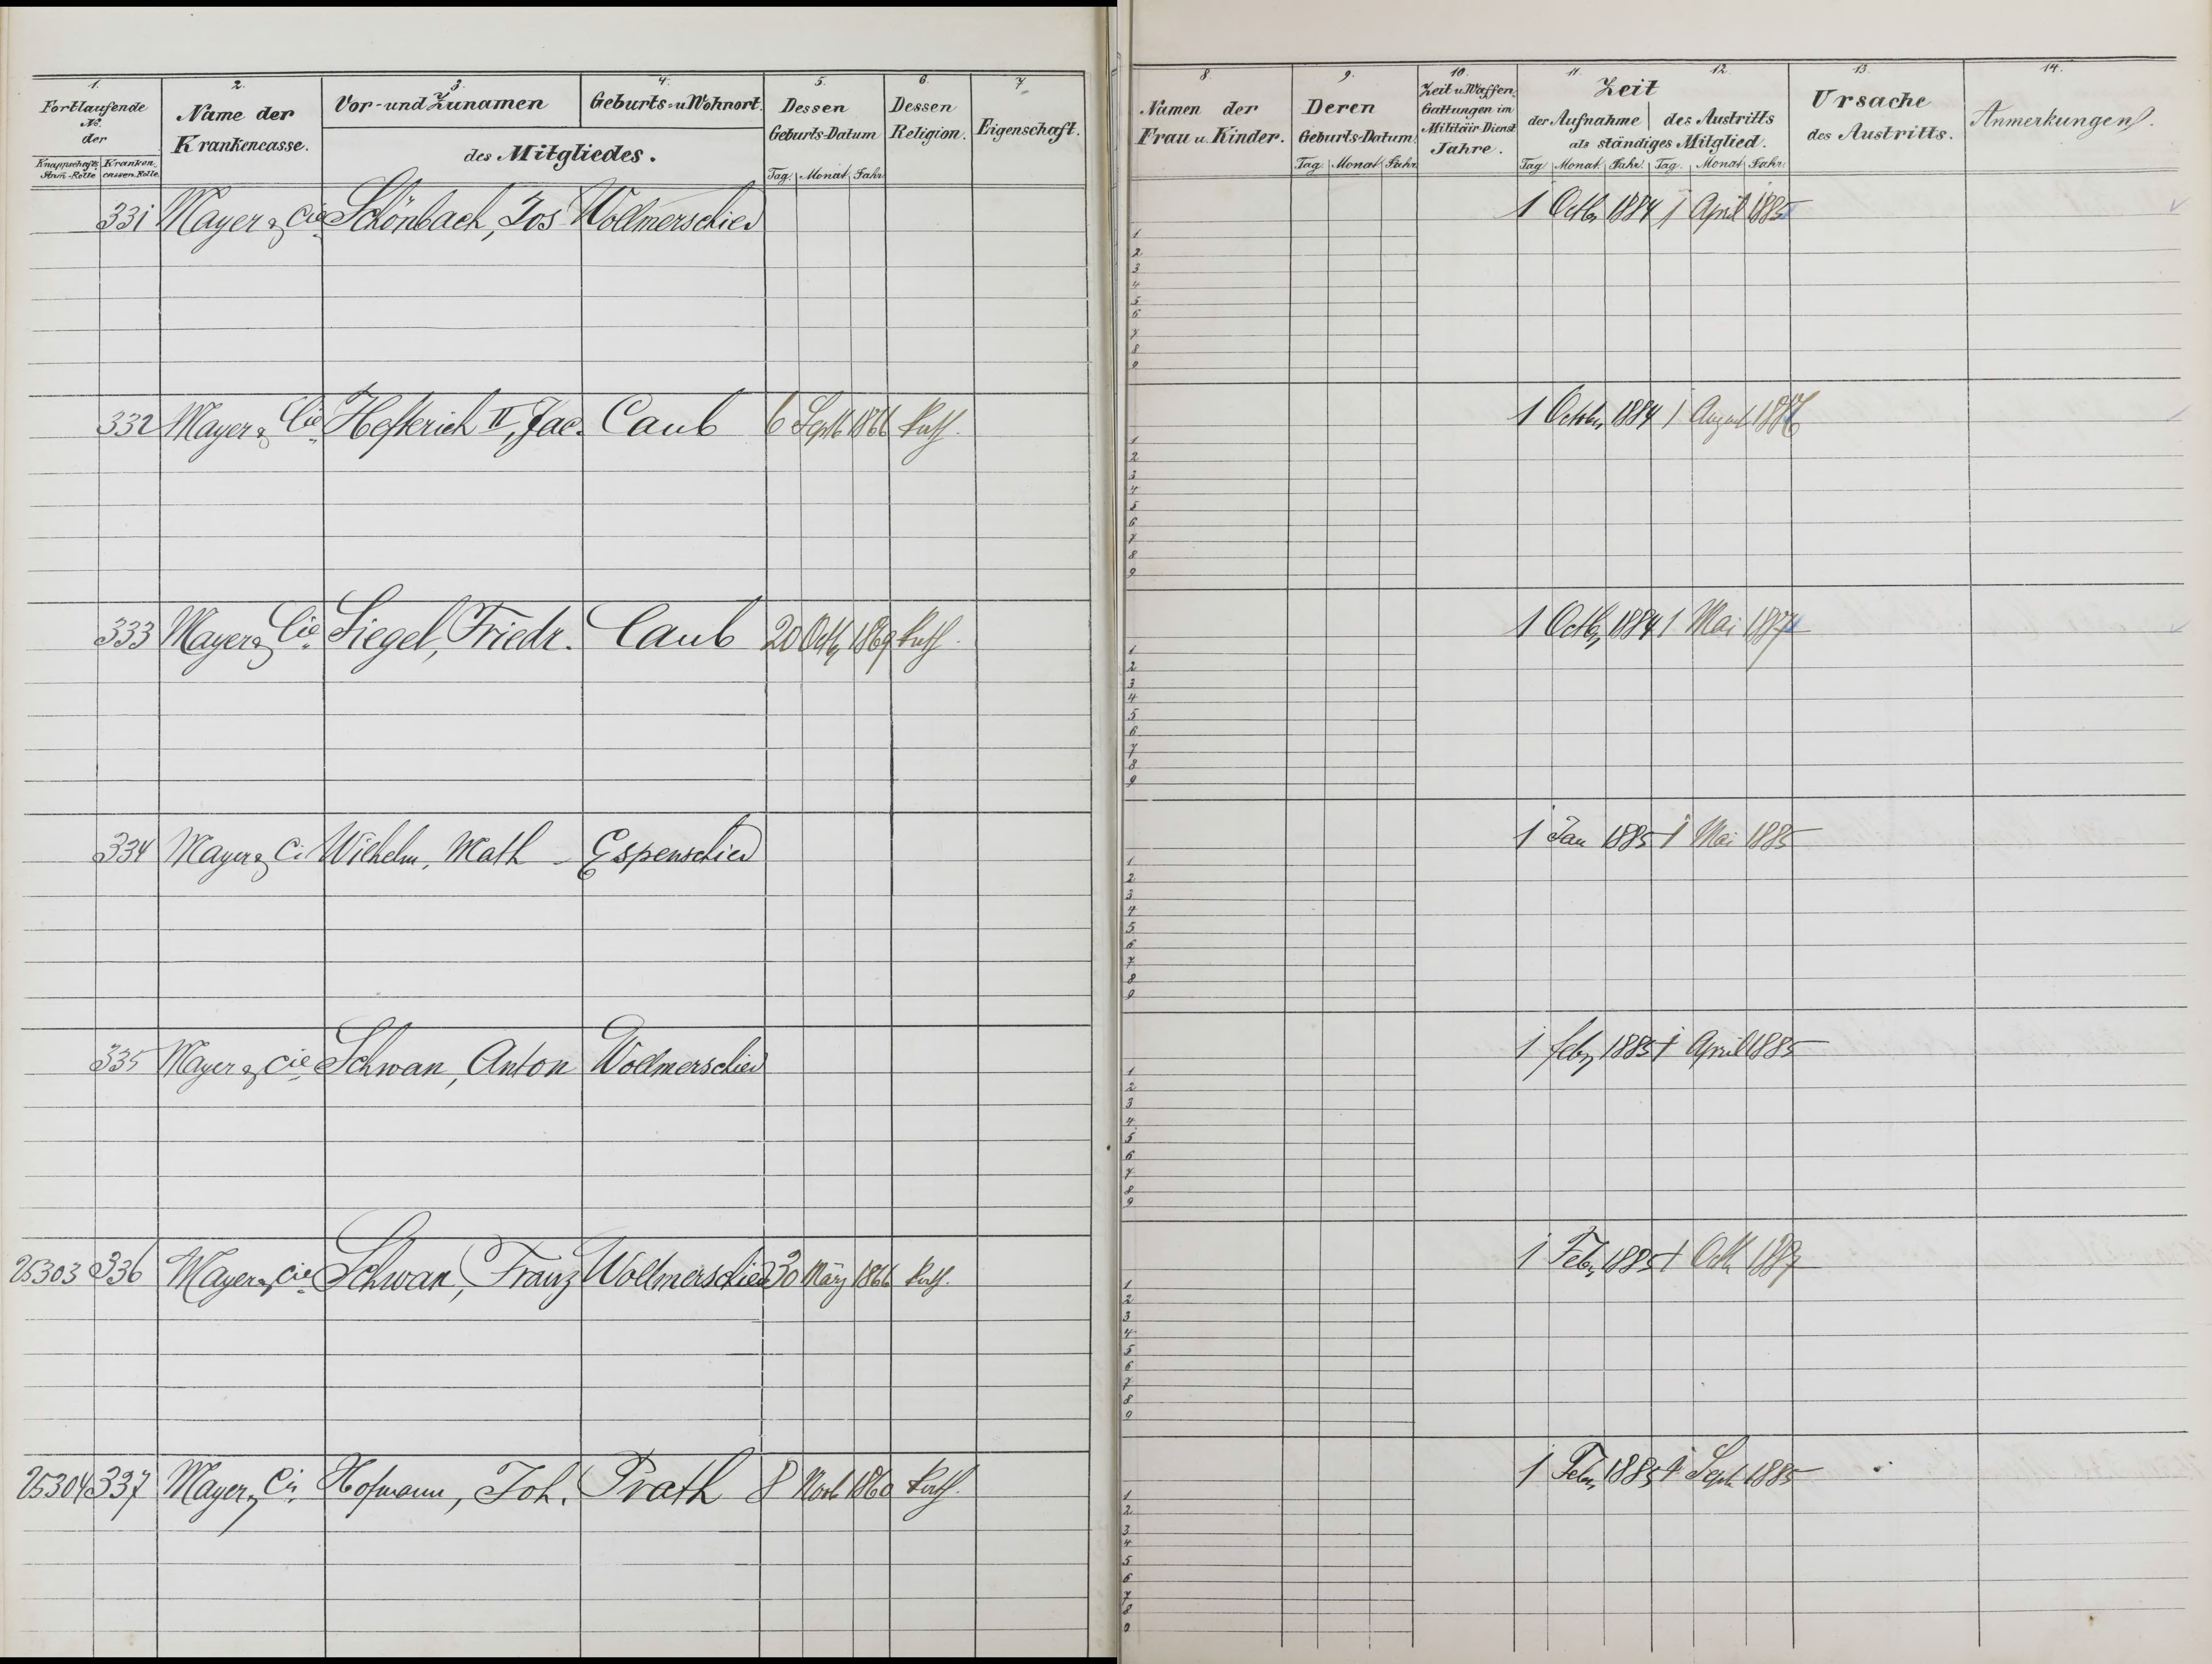 1. 2. 3. 4. 5. 6. 7
Fortlaufende No. der
Knappschafts Stam-Rolle Kranken cassen-Rolle
Name der Krankencasse.
Vor- und Zunamen Geburts- u Wohnort.
des Mitgliedes.
Dessen Geburts-Datum
Tag. Monat Jahr
Dessen Religion.
Eigenschaft.
331 Mayer & Cie Schönbach, Jos Wollmerschied
332 Mayer & Cie Hefterich II, Jac. Caub 6 Septb 1866 kath.
333 Mayer & Cie Siegel, Friedr. Caub 20 Octb 1869 kath.
334 Mayer & Ci Wilhelm, Math Espenschied
335 Mayer & Cie Schwan, Anton Wollmerschied
25303 336 Mayer & Cie Schwan, Franz Wollmerschied 30 März 1866 kath.
25304 337 Mayer & Cie Hofmann, Joh. Prath 8 Novb 1860 kath.
8. 9. 10. 11. 12. 13. 14.
Namen der Frau u. Kinder.
Deren Geburts-Datum.
Tag Monat Jahr
Zeit u. Waffen, Gattungen im Militair-Dienst Jahre.
Zeit
der Aufnahme des Austritts
als ständiges Mitglied.
Tag Monat Jahr. Tag. Monat Jahr.
Ursache des Austritts.
Anmerkungen.
1 Octb 1884 1 April 1885
1
2
3
4
5
6
7
8
9
1 Octbr 1884 1 August 1886
1
2
3
4
5
6
7
8
9
1 Octb 1884 1 Mai
1
2
3
4
5
6
7
8
9
1 Jan 1885 1 Mai 1885
1
2
3
4
5
6
7
8
9
1 febr 1885 1 April 1885
1
2
3
4
5
6
7
8
9
1 Febr 1885 1 Octb 1887
1
2
3
4
5
6
7
8
9
1 Febr 1885 1 Sept 1885
1
2
3
4
5
6
7
8
9